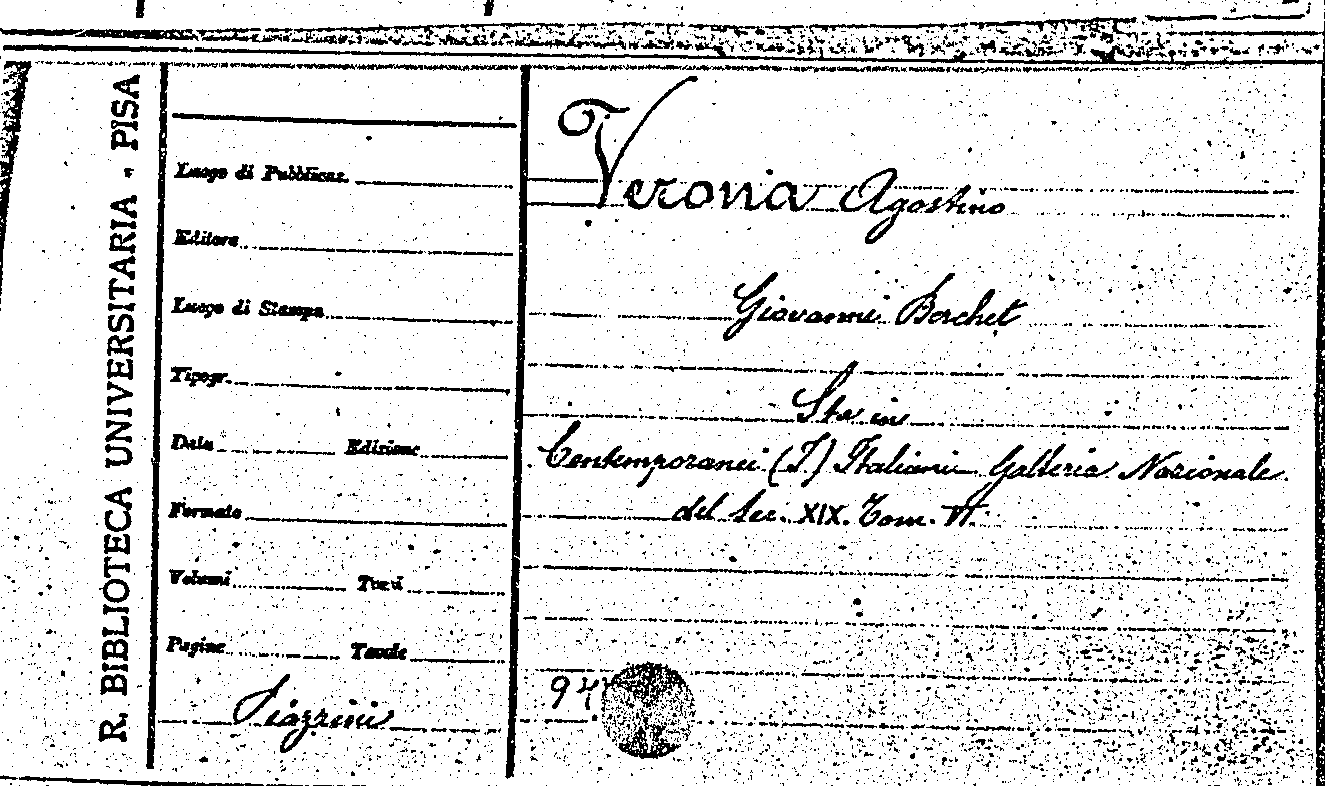 R. BIBLIOTECA UNIVERSITARIA - PISA
Luogo di Pubblicaz.
Editore
Luogo di Stampa
Tipogr.
Data Edizione
Formato
Volumi Tomi
Pagine Tavole
Piazzini
Verona Agostino
Giovanni Berchet
Sta in
Contemporanei (I) Italiani Galleria Nazionale
del Sec. XIX. Tom. VI.